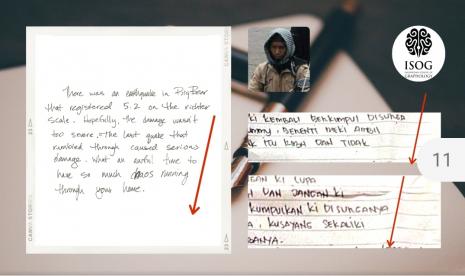 There was an earthquake in
that registered 5.2 on the richter
scale. Hopefully, the damage wasn't
too severe. The last quake that
rumbled through caused serious
damage. What an awful time to
have so much chaos running
through your home.
ISOG
GRAPHOLOGY
KI KEMBALI BERKUMPUL DISURGA
BERENTI MEKI AMBIL
ITU KASIH DAN TIDAK
KI LUPA
DAN JANGAN KI
KUMPULKAN KI DISURGANYA
KUSAYANG SEKALIKI
11